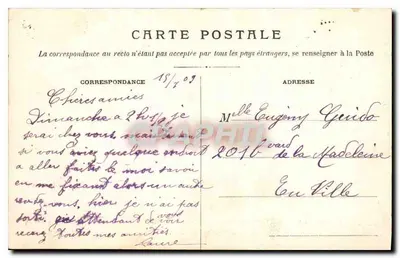 CARTE POSTALE
La correspondance au recto n'étant pas acceptée par tous les pays étrangers, se renseigner à la Poste
CORRESPONDANCE
ADRESSE
Chères amies
Dimanche a 2h 1/2 je
serai chez vous, mais
si vous aviez quelque endroit
a aller faites le moi savoir
en me fixant alors un autre
rendez vous, hier je n'ai pas
sorti, attendant de vous
recevez toutes mes amitiés
Laure
Melle Eugeny
201 bvard de la Madeleine
En Ville